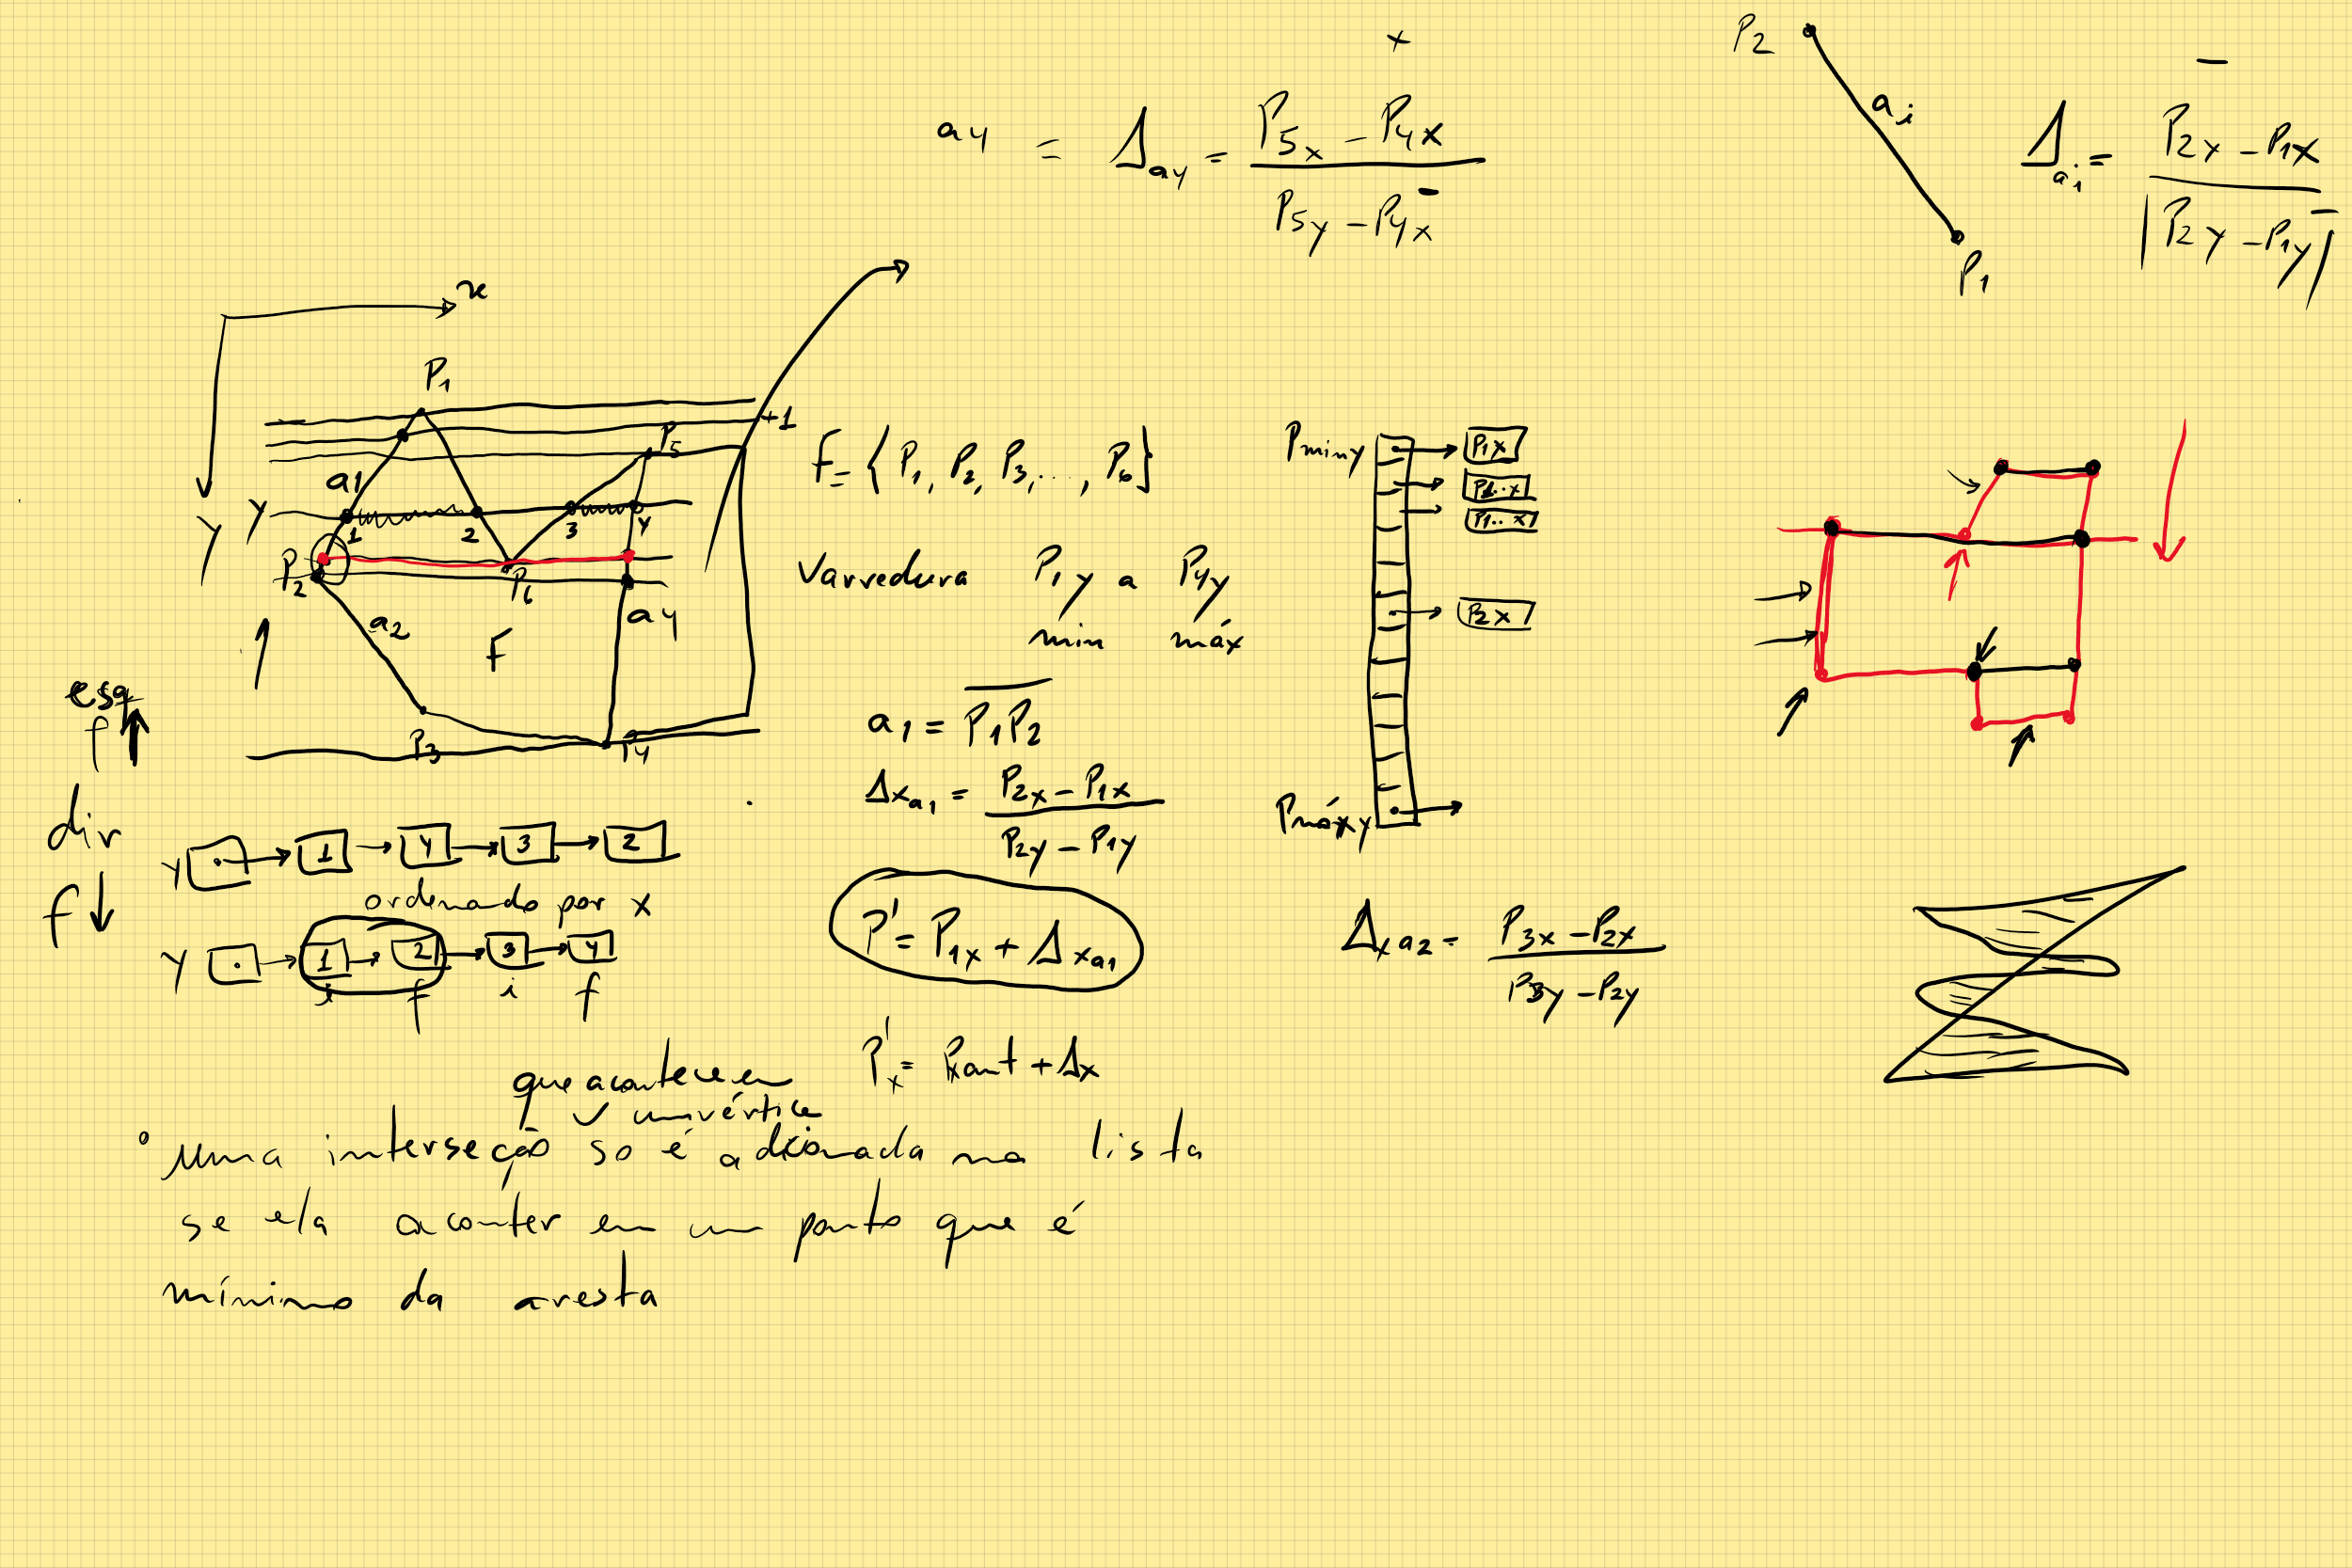 x
P2
a4 = Δa4 = (P5x - P4x) / (P5y - P4x)
ai
Δai = (P2x - P1x) / |P2y - P1y|
P1
x
y
P1
+1
P5
a1
y
1 2 3 4
P2
P6
a2
F
a4
P3
P4
F = { P1, P2, P3, ..., P6 }
Varredura P1y a P4y
min máx
a1 = P1P2
Δxa1 = (P2x - P1x) / (P2y - P1y)
P' = P1x + Δxa1
P'x = Pxant + Δx
Pminy
P1x
P1..x
P1..x
P2x
Pmáxy
Δxa2 = (P3x - P2x) / (P3y - P2y)
esq
f ↑
dir
f ↓
y 1 → 4 → 3 → 2
ordenado por x
y 1 → 2 → 3 → 4
i f i f
que acontece em
um vértice
° uma interseção so é adicionada na lista
se ela aconter em um ponto que é
mínimo da aresta